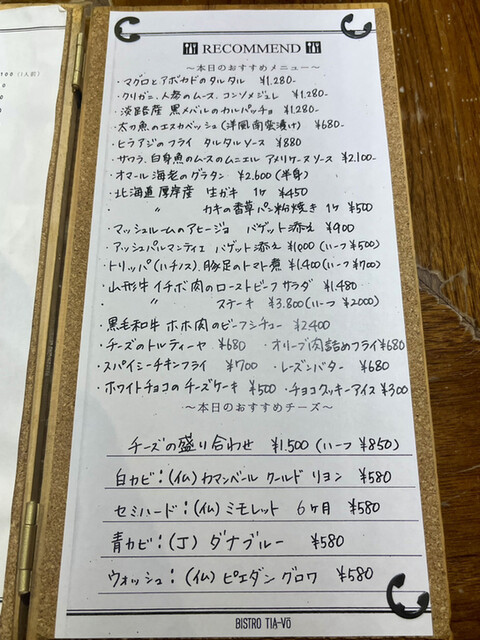 100 (1人前)
RECOMMEND
〜本日のおすすめメニュー〜
・マグロとアボカドのタルタル ¥1,280-
・クリガニ、人参のムース、コンソメジュレ ¥1,280-
・淡路産 黒メバルのカルパッチョ ¥1,280-
・太刀魚のエスカベッシュ(洋風南蛮漬け) ¥680-
・ヒラアジのフライ タルタルソース ¥880
・サワラ、白身魚のムースのムニエル アメリケーヌソース ¥2,100-
・オマール海老のグラタン ¥2,600(半身)
・北海道厚岸産 生ガキ 1ヶ ¥450
〃 カキの香草パン粉焼き 1ヶ ¥500
・マッシュルームのアヒージョ バゲット添え ¥900
・アッシュパルマンティエ バゲット添え ¥1,000(ハーフ¥500)
・トリッパ(ハチノス)、豚足のトマト煮 ¥1,400(ハーフ¥700)
・山形牛 イチボ肉のローストビーフサラダ ¥1,480
〃 ステーキ ¥3,800(ハーフ¥2000)
・黒毛和牛 ホホ肉のビーフシチュー ¥2400
・チーズのトルティーヤ ¥680 ・オリーブ肉詰めフライ¥680
・スパイシーチキンフライ ¥700 ・レーズンバター ¥680
・ホワイトチョコのチーズケーキ ¥500 ・チョコクッキーアイス¥300
〜本日のおすすめチーズ〜
チーズの盛り合わせ ¥1,500(ハーフ¥850)
白カビ:(仏)カマンベール クールド リヨン ¥580
セミハード:(仏)ミモレット 6ヶ月 ¥580
青カビ:(丁)ダナブルー ¥580
ウォッシュ:(仏)ピエダングロワ ¥580
BISTRO TIA-Vō